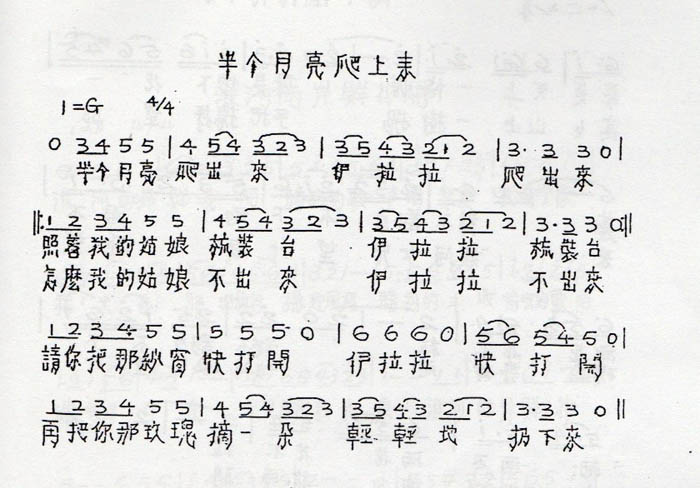 半个月亮爬上來
1=G 4/4
0 3 4 5 5 | 4 5 4 3 2 3 | 3 5 4 3 2 1 2 | 3· 3 3 0 |
半个月亮 爬出來 伊拉拉 爬出來
‖: 1 2 3 4 5 5 | 4 5 4 3 2 3 | 3 5 4 3 2 1 2 | 3· 3 3 0 :‖
照著我的姑娘 梳裝台 伊拉拉 梳裝台
怎麽我的姑娘 不出來 伊拉拉 不出來
1 2 3 4 5 5 | 5 5 5 0 | 6 6 6 0 | 5 6 5 4 5 0 |
請你把那紗窗 快打開 伊拉拉 快打開
1 2 3 4 5 5 | 4 5 4 3 2 3 | 3 5 4 3 2 1 2 | 3· 3 3 0 ‖
再把你那玫瑰 摘一朵 輕輕地 扔下來